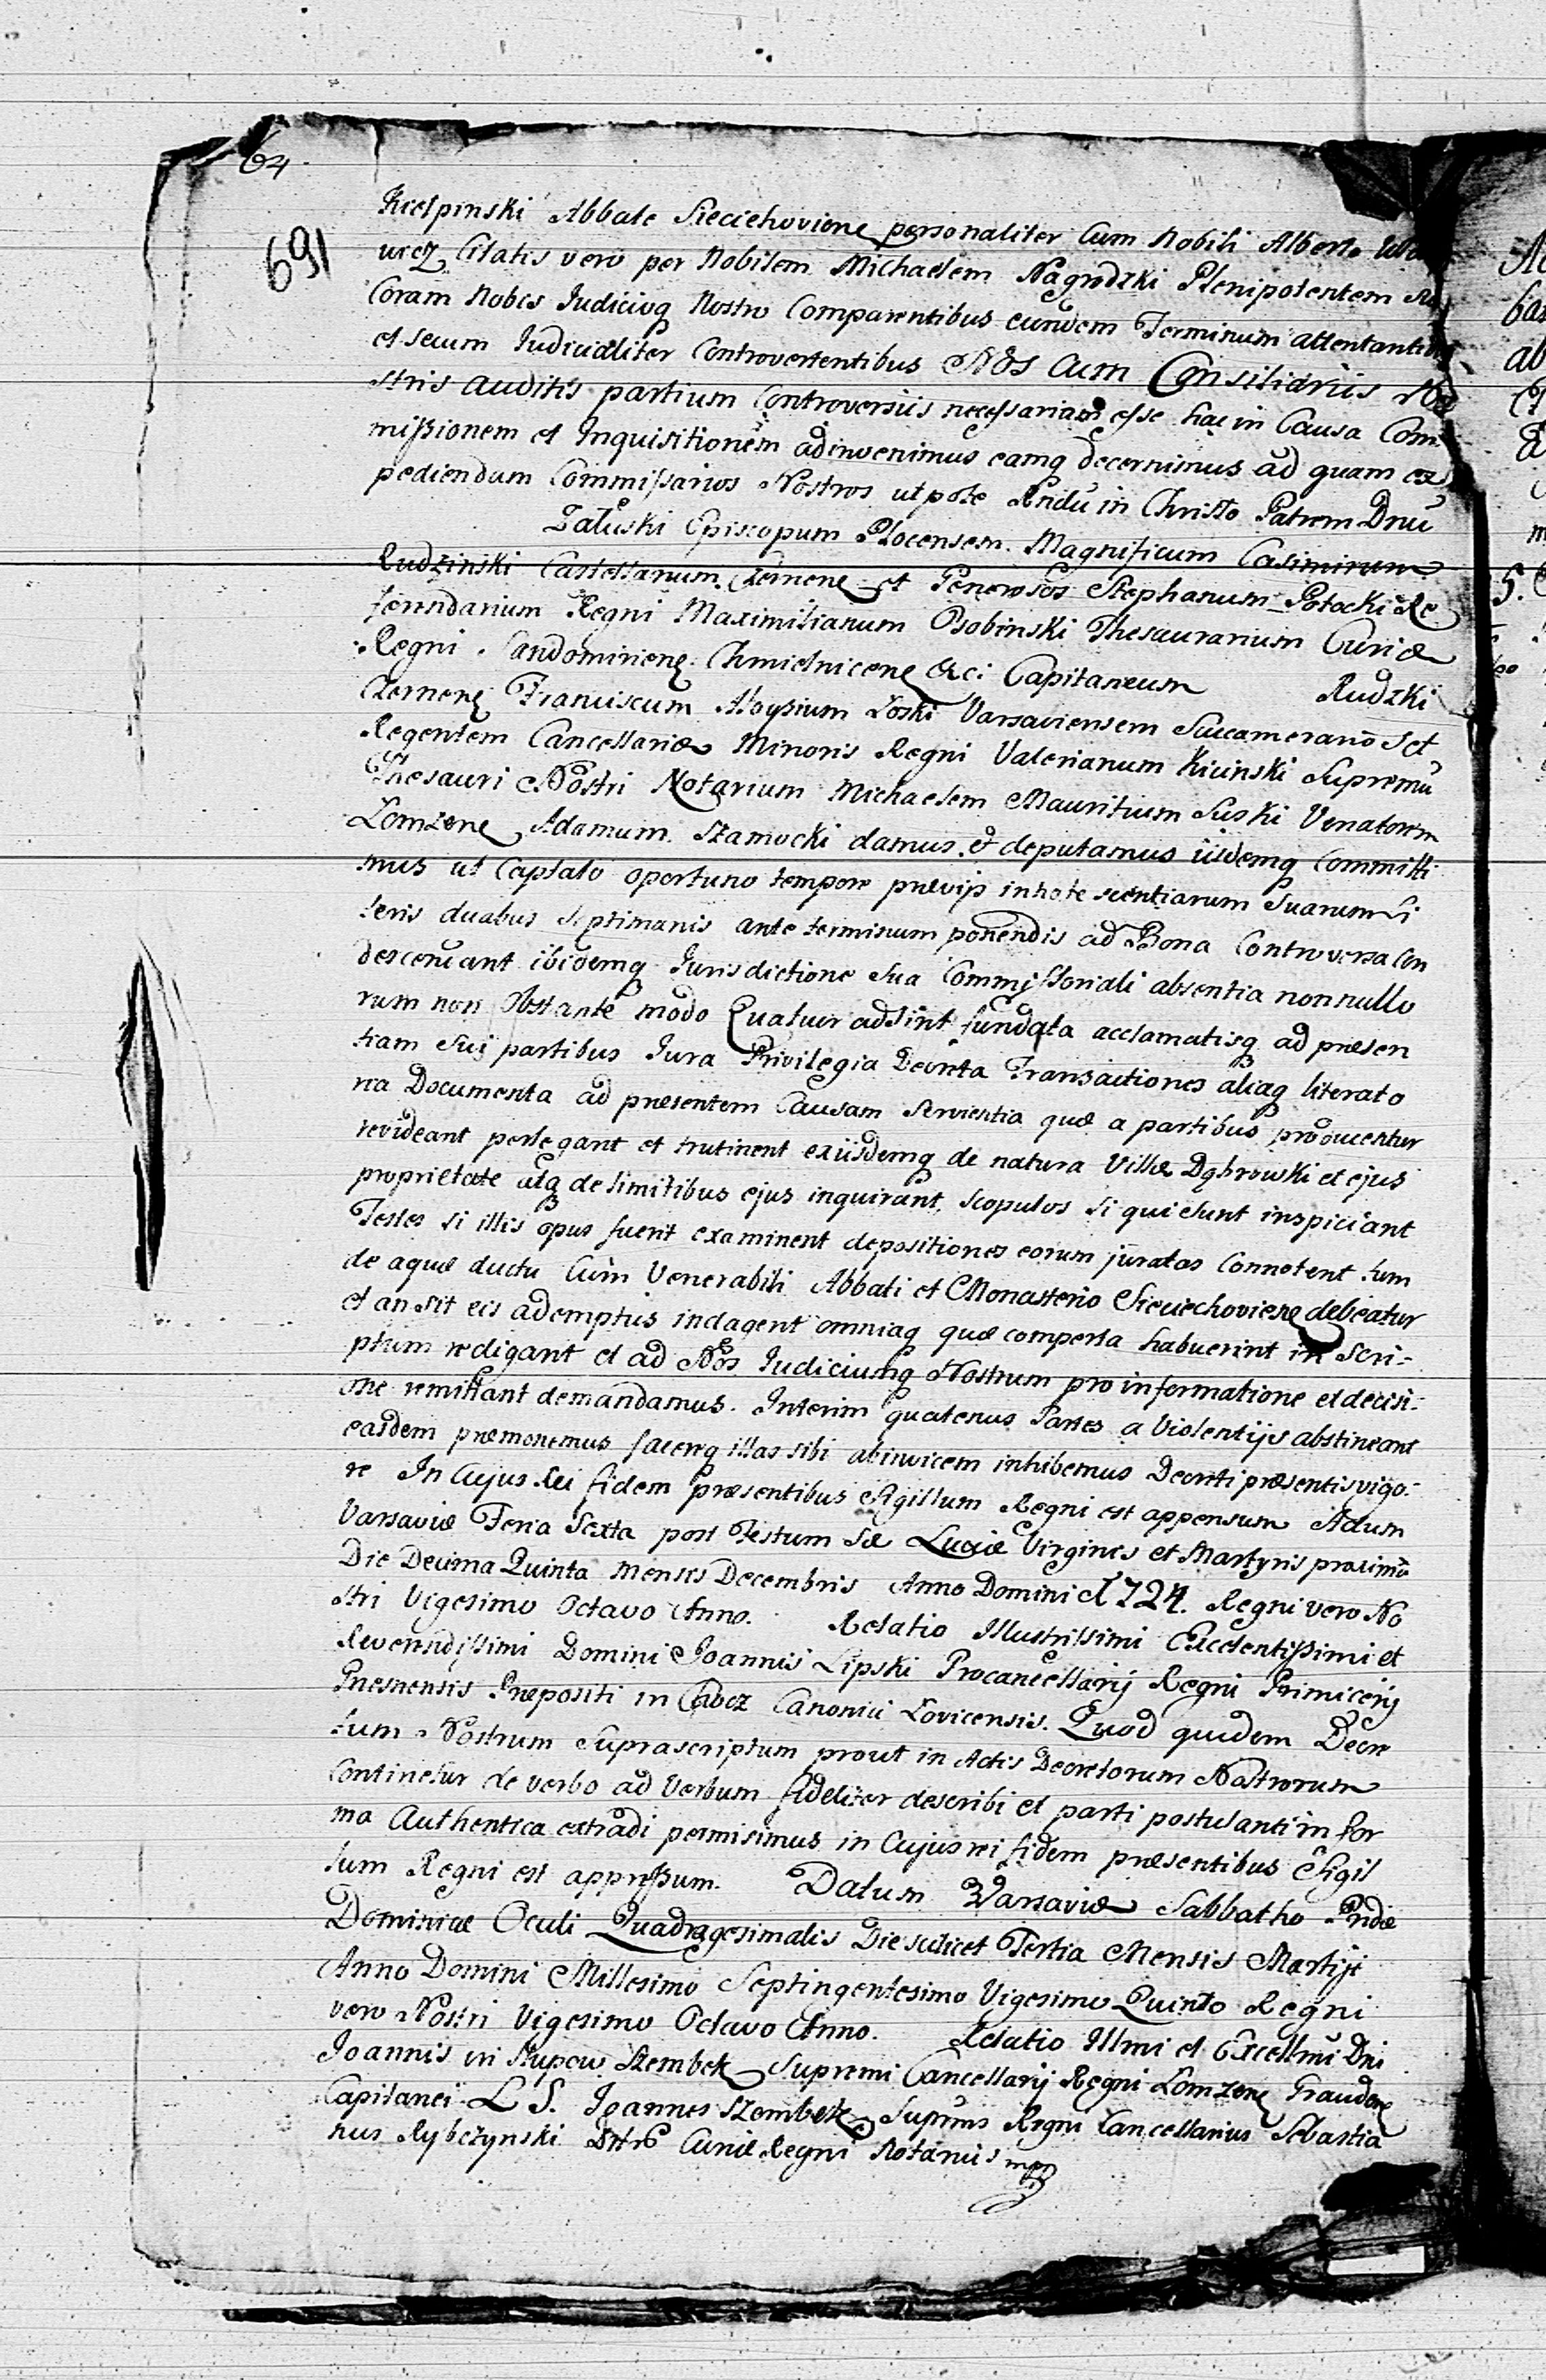 64
691
Kiełpinski Abbate Sieciehoviene personaliter Cum Nobili Alberto
wicz Citatis vero per Nobilem Michaelem Nagrodzki Plenipotentem
Coram Nobis Iudicioq Nostro Comparentibus eundem Terminum attentantibus
et secum Iudicialiter Controvertentibus Nos Cum Consiliariis No
stris auditis partium Controversiis necessariam esse hac in Causa Com
missionem et Inquisitionem adinvenimus eamq decernimus ad quam ex
pediendam Commissarios Nostros utpote Rndu in Christo Patrem Dnu
Załuski Episcopum Plocensem. Magnificum Casimirum
Rudzinski Castellanum Czernene et Generosos Stephanum Potocki Re
ferendarium Regni Maximilianum Osobinski Thesaurarium Curiæ
Regni. Sandomiriene. Chmielnicene &ci Capitaneum Rudzki
Czernene Franciscum Aloysium Łoski Varsaviensem Succamerarios et
Regentem Cancellariæ Minoris Regni Valerianum Kicinski Supremu
Thesauri Nostri Notarium Michaelem Mauritium Suski Venatorem
Łomzene Adamum Szamocki damus & deputamus iisdemq Committi
mus ut Captato oportuno tempore præviis inhotescentiarum Suarum Li
teris duabus Septimanis ante terminum ponendis ad Bona Controversa Con
descendant ibidemq Iurisdictione Sua Commissoriali absentia nonnullo
rum non obstante modo Quatuor adsint fundata acclamatisq ad præsen
tiam Sui partibus Iura Privilegia Decreta Transactiones aliaq literato
ria Documenta ad præsentem Causam Servientia quæ a partibus producentur
revideant perlegant et trutinent exiisdemq de natura Villæ Dąbrowski et ejus
proprietate atq de limitibus ejus inquirant, scopulos Si qui sunt inspiciant
Testes Si illis opus fuerit examinent depositiones eorum juratas Connotent tum
de aquæ ductu Cum Venerabili Abbati et Monasterio Sieciechoviene debeatur
et an sit eis ademptus indagent omniaq quæ comperta habuerint in Scri-
ptum redigant et ad Nos Iudiciumq Nostrum pro informatione et decisi-
one remittant demandamus. Interim quatenus Partes a Violentijs abstineant
easdem præmonemus facereq illas sibi abinvicem inhibemus Decreti præsentis vigo-
re In Cujus Rei fidem præsentibus Sigillum Regni est appensum Actum
Varsaviæ Feria Sexta post Festum Sæ Luciæ Virginis et Martyris proximo
Die Decima Quinta Mensis Decembris Anno Domini 1724. Regni vero No
stri Vigesimo Octavo Anno. Relatio Illustrissimi Excelentissimi et
Reverendissimi Domini Joannis Lipski Procancellarij Regni Primicerij
Gnesnensis Præpositi in Chocz Canonici Lovicensis. Quod quidem Decre
tum Nostrum Suprascriptum prout in Actis Decretorum Nostrorum
Continetur de verbo ad Verbum fideliter describi et parti postulanti in for
ma Authentica extradi permisimus in Cujus rei fidem præsentibus Sigil
lum Regni est appressum. Datum Varsaviæ Sabbatho Pridie
Dominicæ Oculi Quadragesimalis Die scilicet Tertia Mensis Martij
Anno Domini Millesimo Septingentesimo Vigesimo Quinto Regni
vero Nostri Vigesimo Octavo Anno. Relatio Illmi et Excellmi Dni
Joannis in Słupow Szembek Supremi Cancellarij Regni Łomzene Graudene
Capitanei L S. Joannes Szembek Supmus Regni Cancellarius Sebastia
nus Rybczynski Curiæ Regni Notarius mp